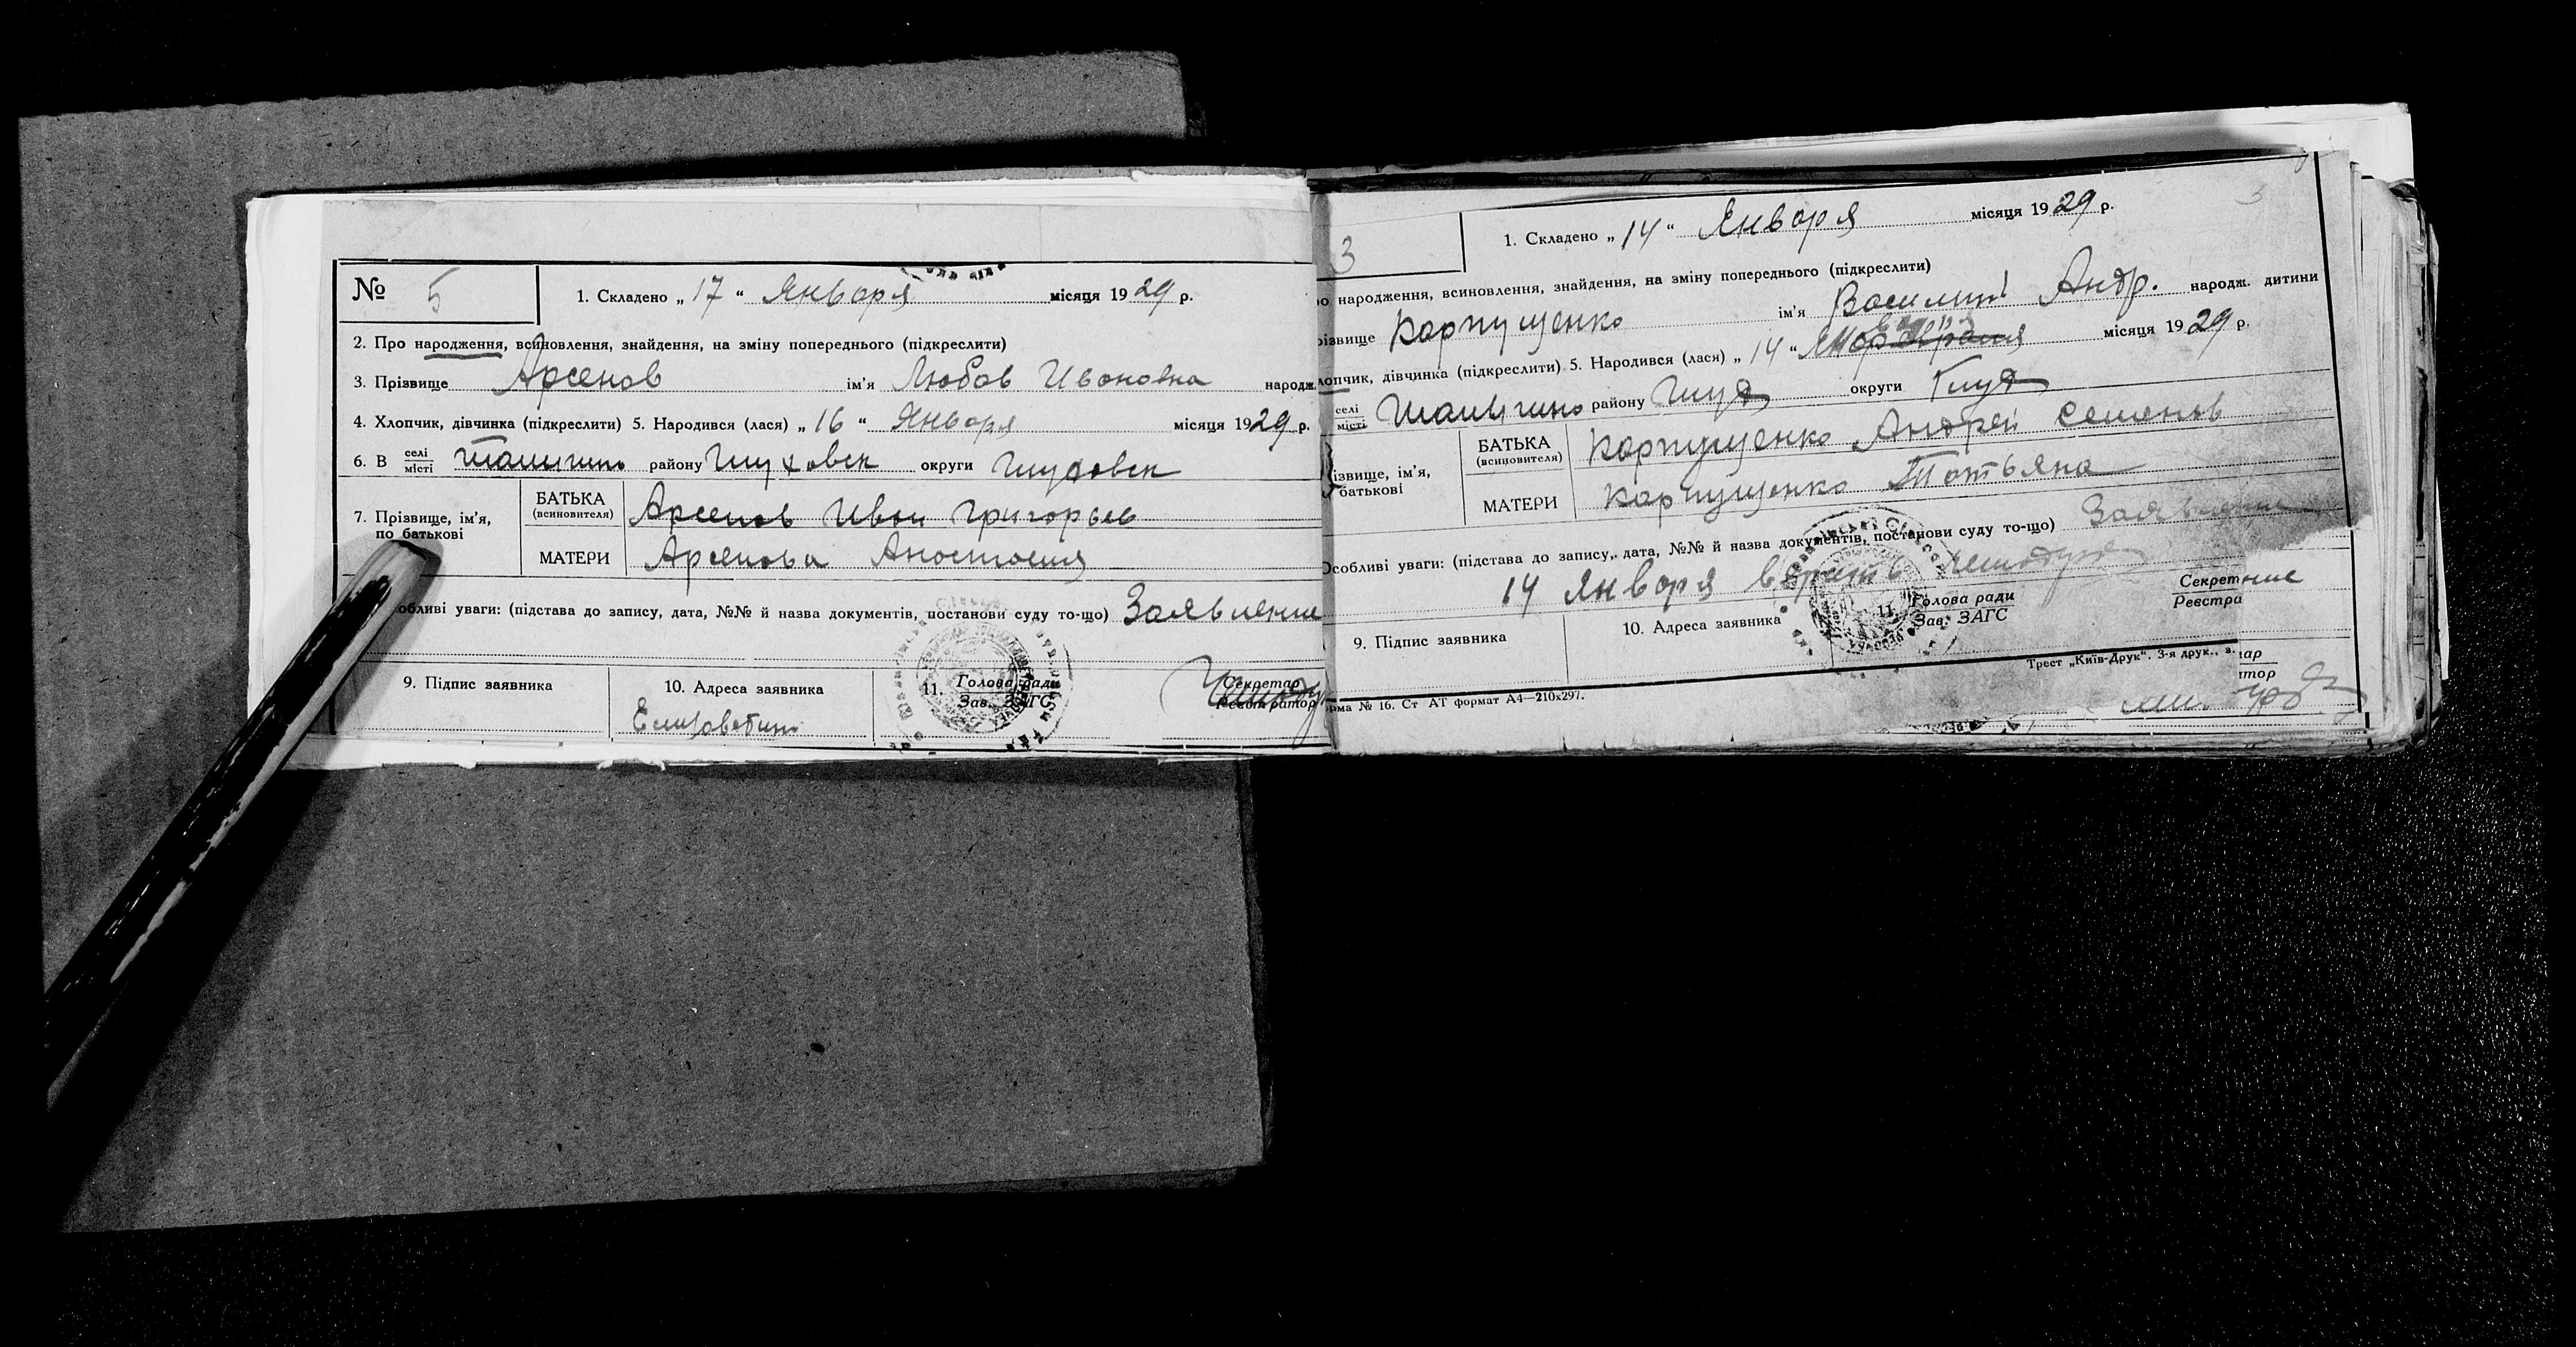 № 5
1. Складено „ 17 “ Января місяця 1929 р.
2. Про народження, всиновлення, знайдення, на зміну попереднього (підкреслити)
3. Прізвище Арсенов ім'я Любов Ивановна народж.
4. Хлопчик, дівчинка (підкреслити) 5. Народився (лася) „ 16 “ Января місяця 1929 р.
6. В селі місті району Глуховск округи Глуховск
7. Прізвище, ім'я, по батькові
БАТЬКА (всиновителя) Арсенов Иван Григорьев
МАТЕРИ Арсенова Анастасия
обливі уваги: (підстава до запису, дата, №№ й назва документів, постанови суду то-що) Заявление
9. Підпис заявника
10. Адреса заявника
11. Голова ради Зав. ЗАГС
Секретар Реєстратор
3
1. Складено „ 14 “ Января місяця 1929 р.
о народження, всиновлення, знайдення, на зміну попереднього (підкреслити)
різвище Карпущенко ім'я Василий Андр. народж. дитини
лопчик, дівчинка (підкреслити) 5. Народився (лася) „ 14 “ місяця 1929 р.
селі місті району Глух округи Глух
ізвище, ім'я, батькові
БАТЬКА (всиновителя) Карпущенко Андрей Семенов
МАТЕРИ Карпущенко Татьяна
Особливі уваги: (підстава до запису, дата, №№ й назва документів, постанови суду то-що)
14 Января
9. Підпис заявника
10. Адреса заявника
11. Голова ради Зав. ЗАГС
Секрет
Реєстра
рма № 16. Ст АТ формат А4—210х297.
Трест „Київ-Друк“. 3-я друк., з.